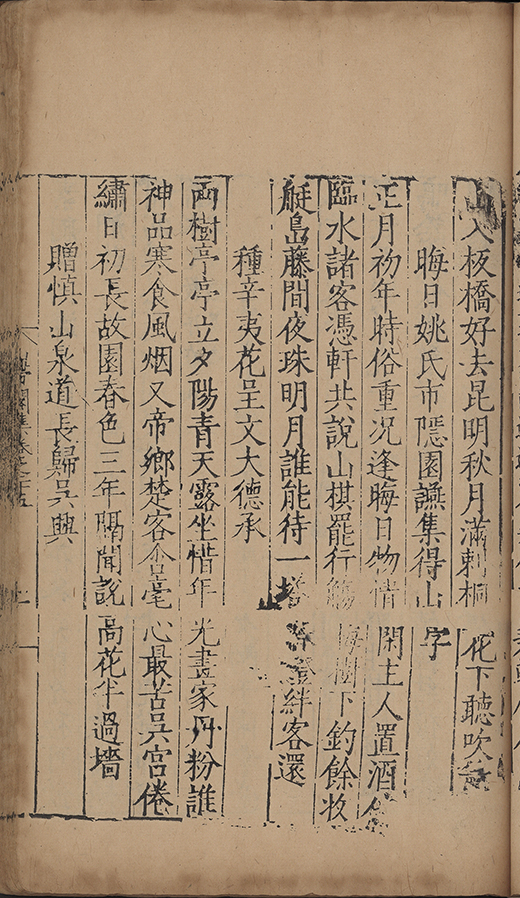 入板橋好去昆明秋月滿刺桐花下聽吹
晦日姚氏市隱園讌集得山字
正月初年時俗重況逢晦日物情閑主人置酒
臨水諸客憑軒共說山棋罷行觴樹下釣餘收
艇島藤間夜珠明月誰能待一絆客還
種辛夷花呈文大德承
兩樹亭亭立夕陽青天露坐惜年光畫家丹粉誰
神品寒食風烟又帝鄉楚客含毫心最苦吳宮倦
繡日初長故園春色三年隔聞說高花半過墻
贈慎山泉道長歸吳興